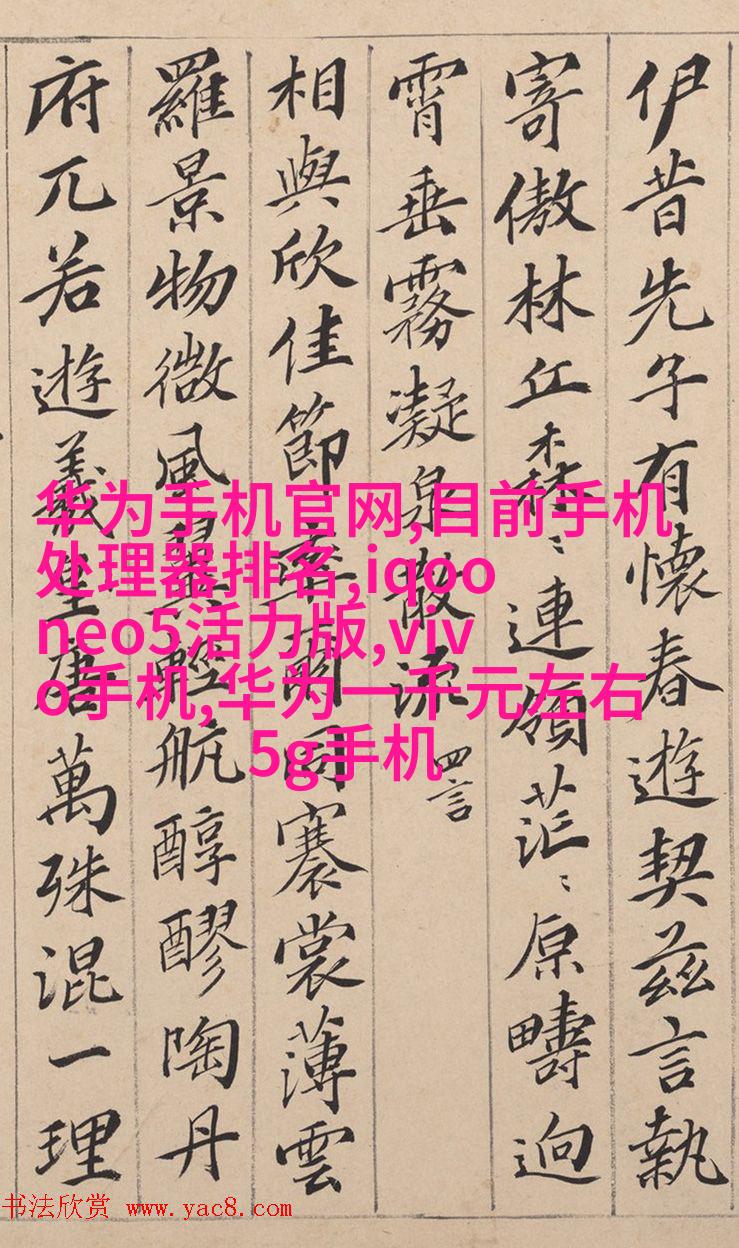 伊昔先子有懷春遊契茲言執
寄傲林丘森〻連領茫〻原疇逈
霄垂霧凝泉散流 四言
相與欣佳節率爾同褰裳薄雲
羅景物微風翼輕航醇醪陶丹
府兀若遊義唐萬殊混一理
华为手机官网,目前手机
处理器排名,iqoo
neo5活力版,viv
o手机,华为一千元左右
5g手机
书法欣赏 www.yac8.com